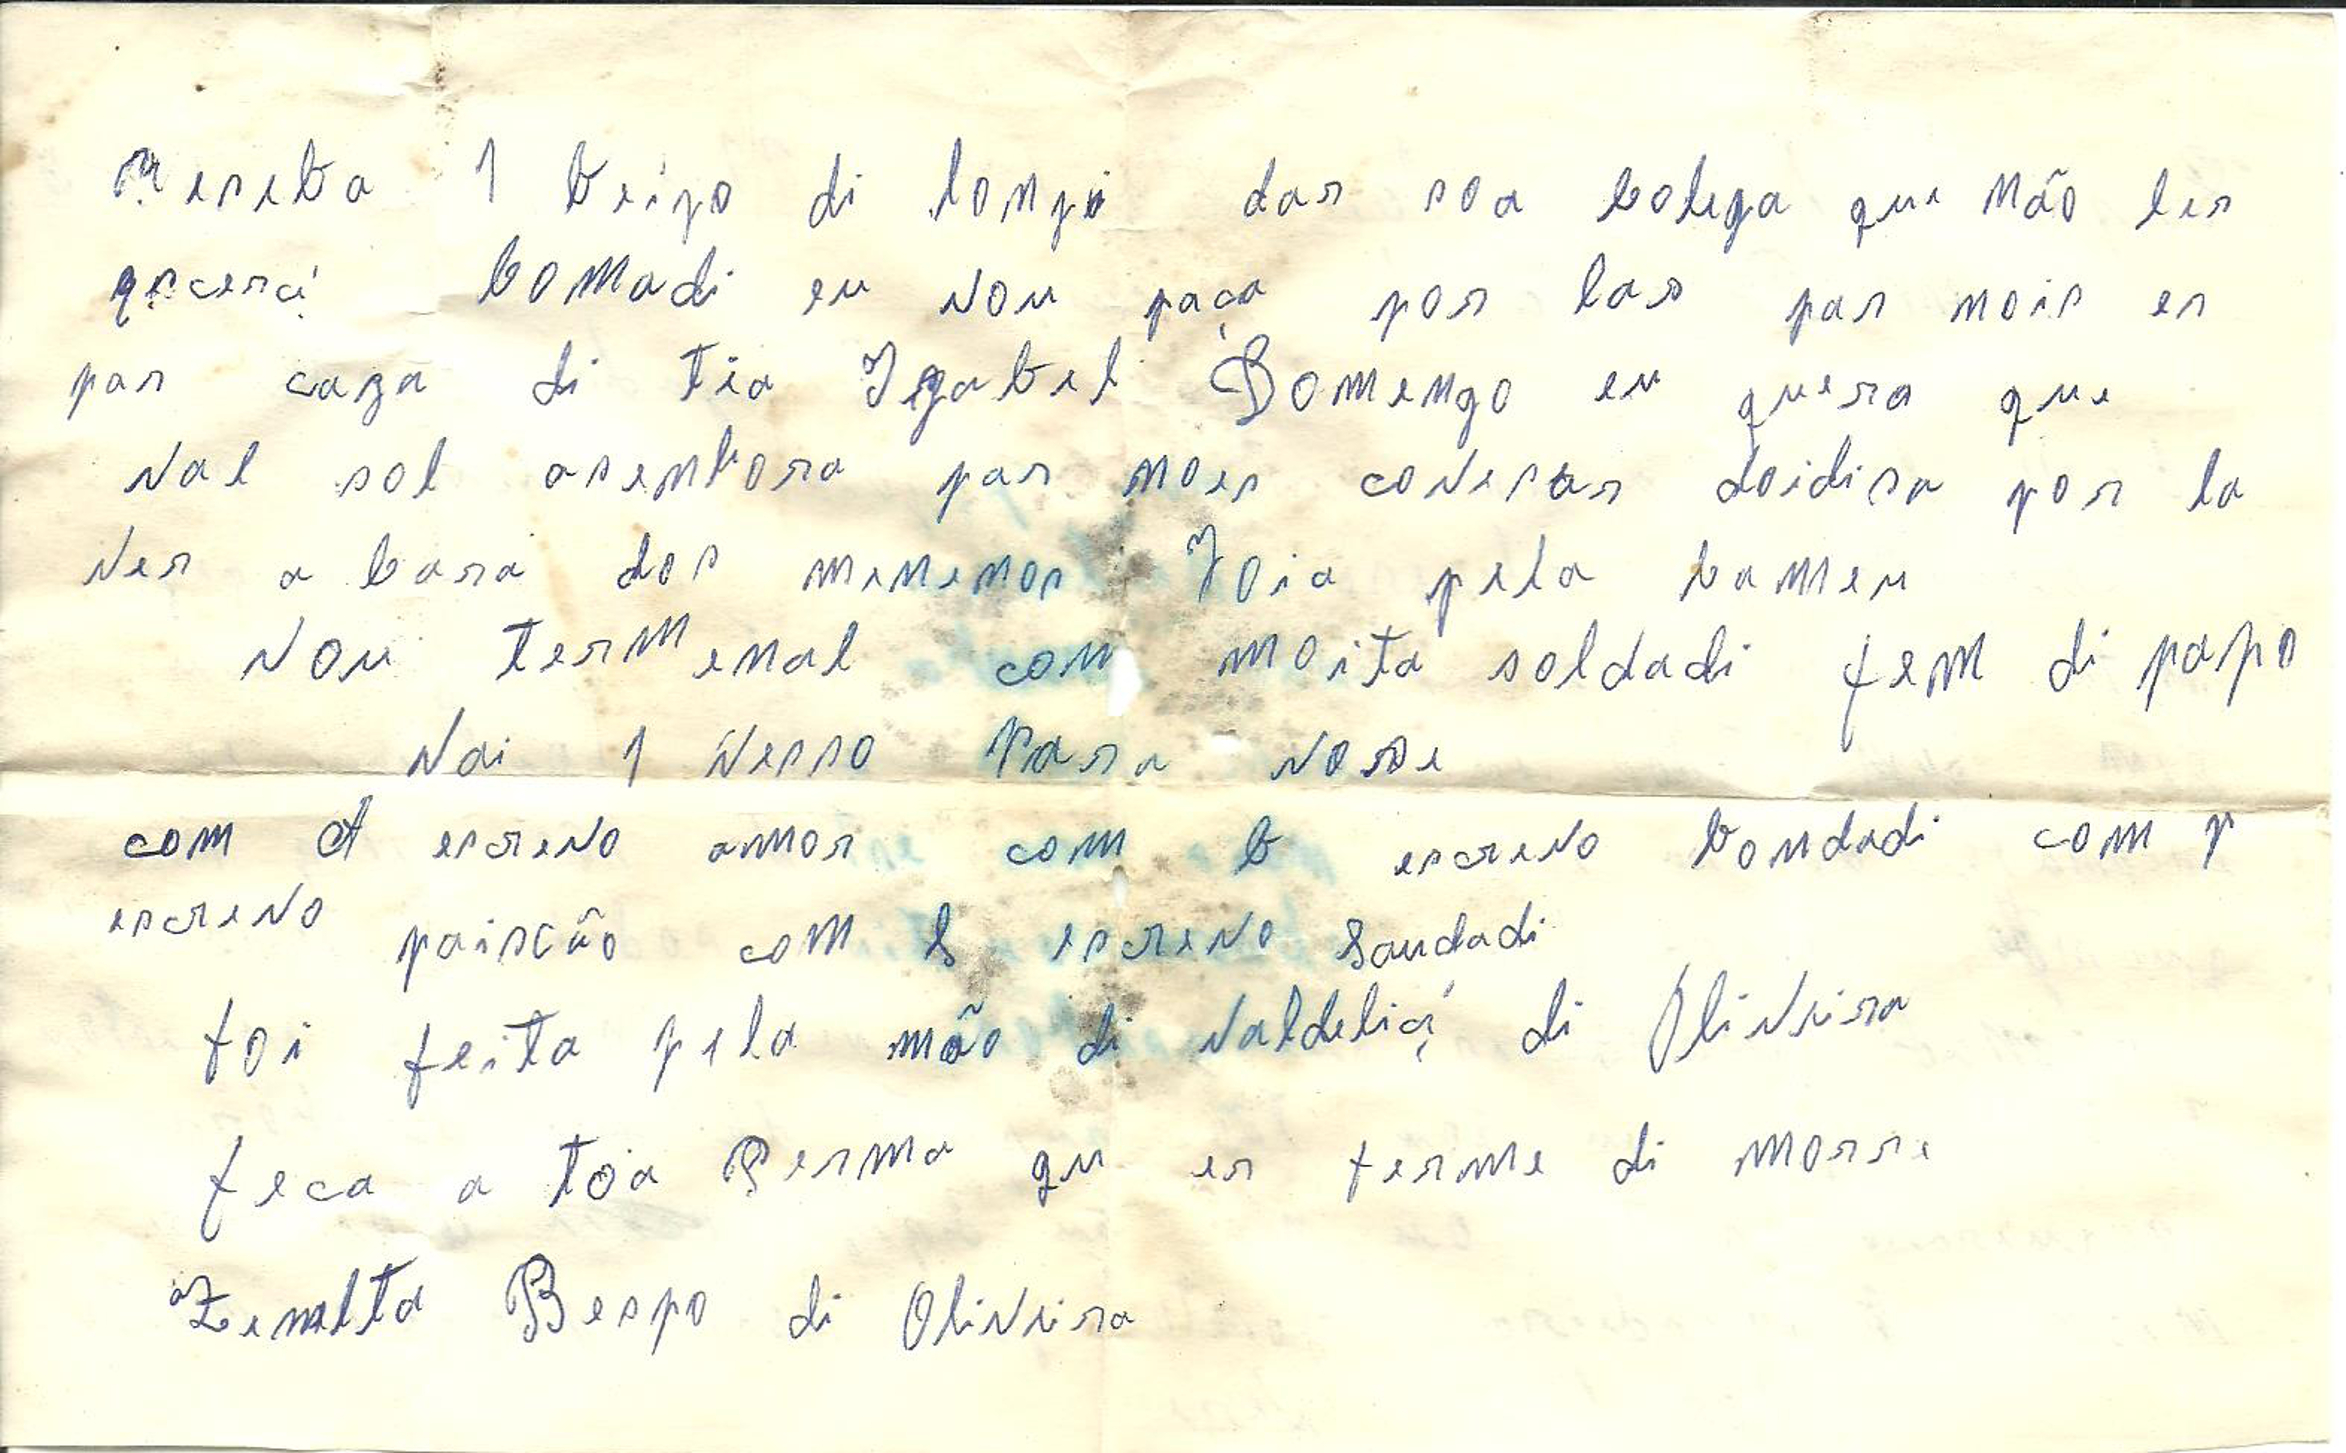 Reseba 1 beijo di lonji dar soa colega que não les
qescerá bomadi eu vou paça por lar par nois er
par caza di tia Izabel Domengo eu quera que
val sol asenhora par noes coversar doidisa por la
ver a bara dos menenos Joia pela bameu
vou termenal com moita soldadi fem di papo
vai 1 versso Para vose
com A escrevo amor com b escrevo bondadi com p
escrevo paiscão com S escrevo Saudadi
foi feita pela mão di valdeliça di Oliveira
feca a toa Perma qu er ferme di morre
Zenilta Bespo di Oliveira